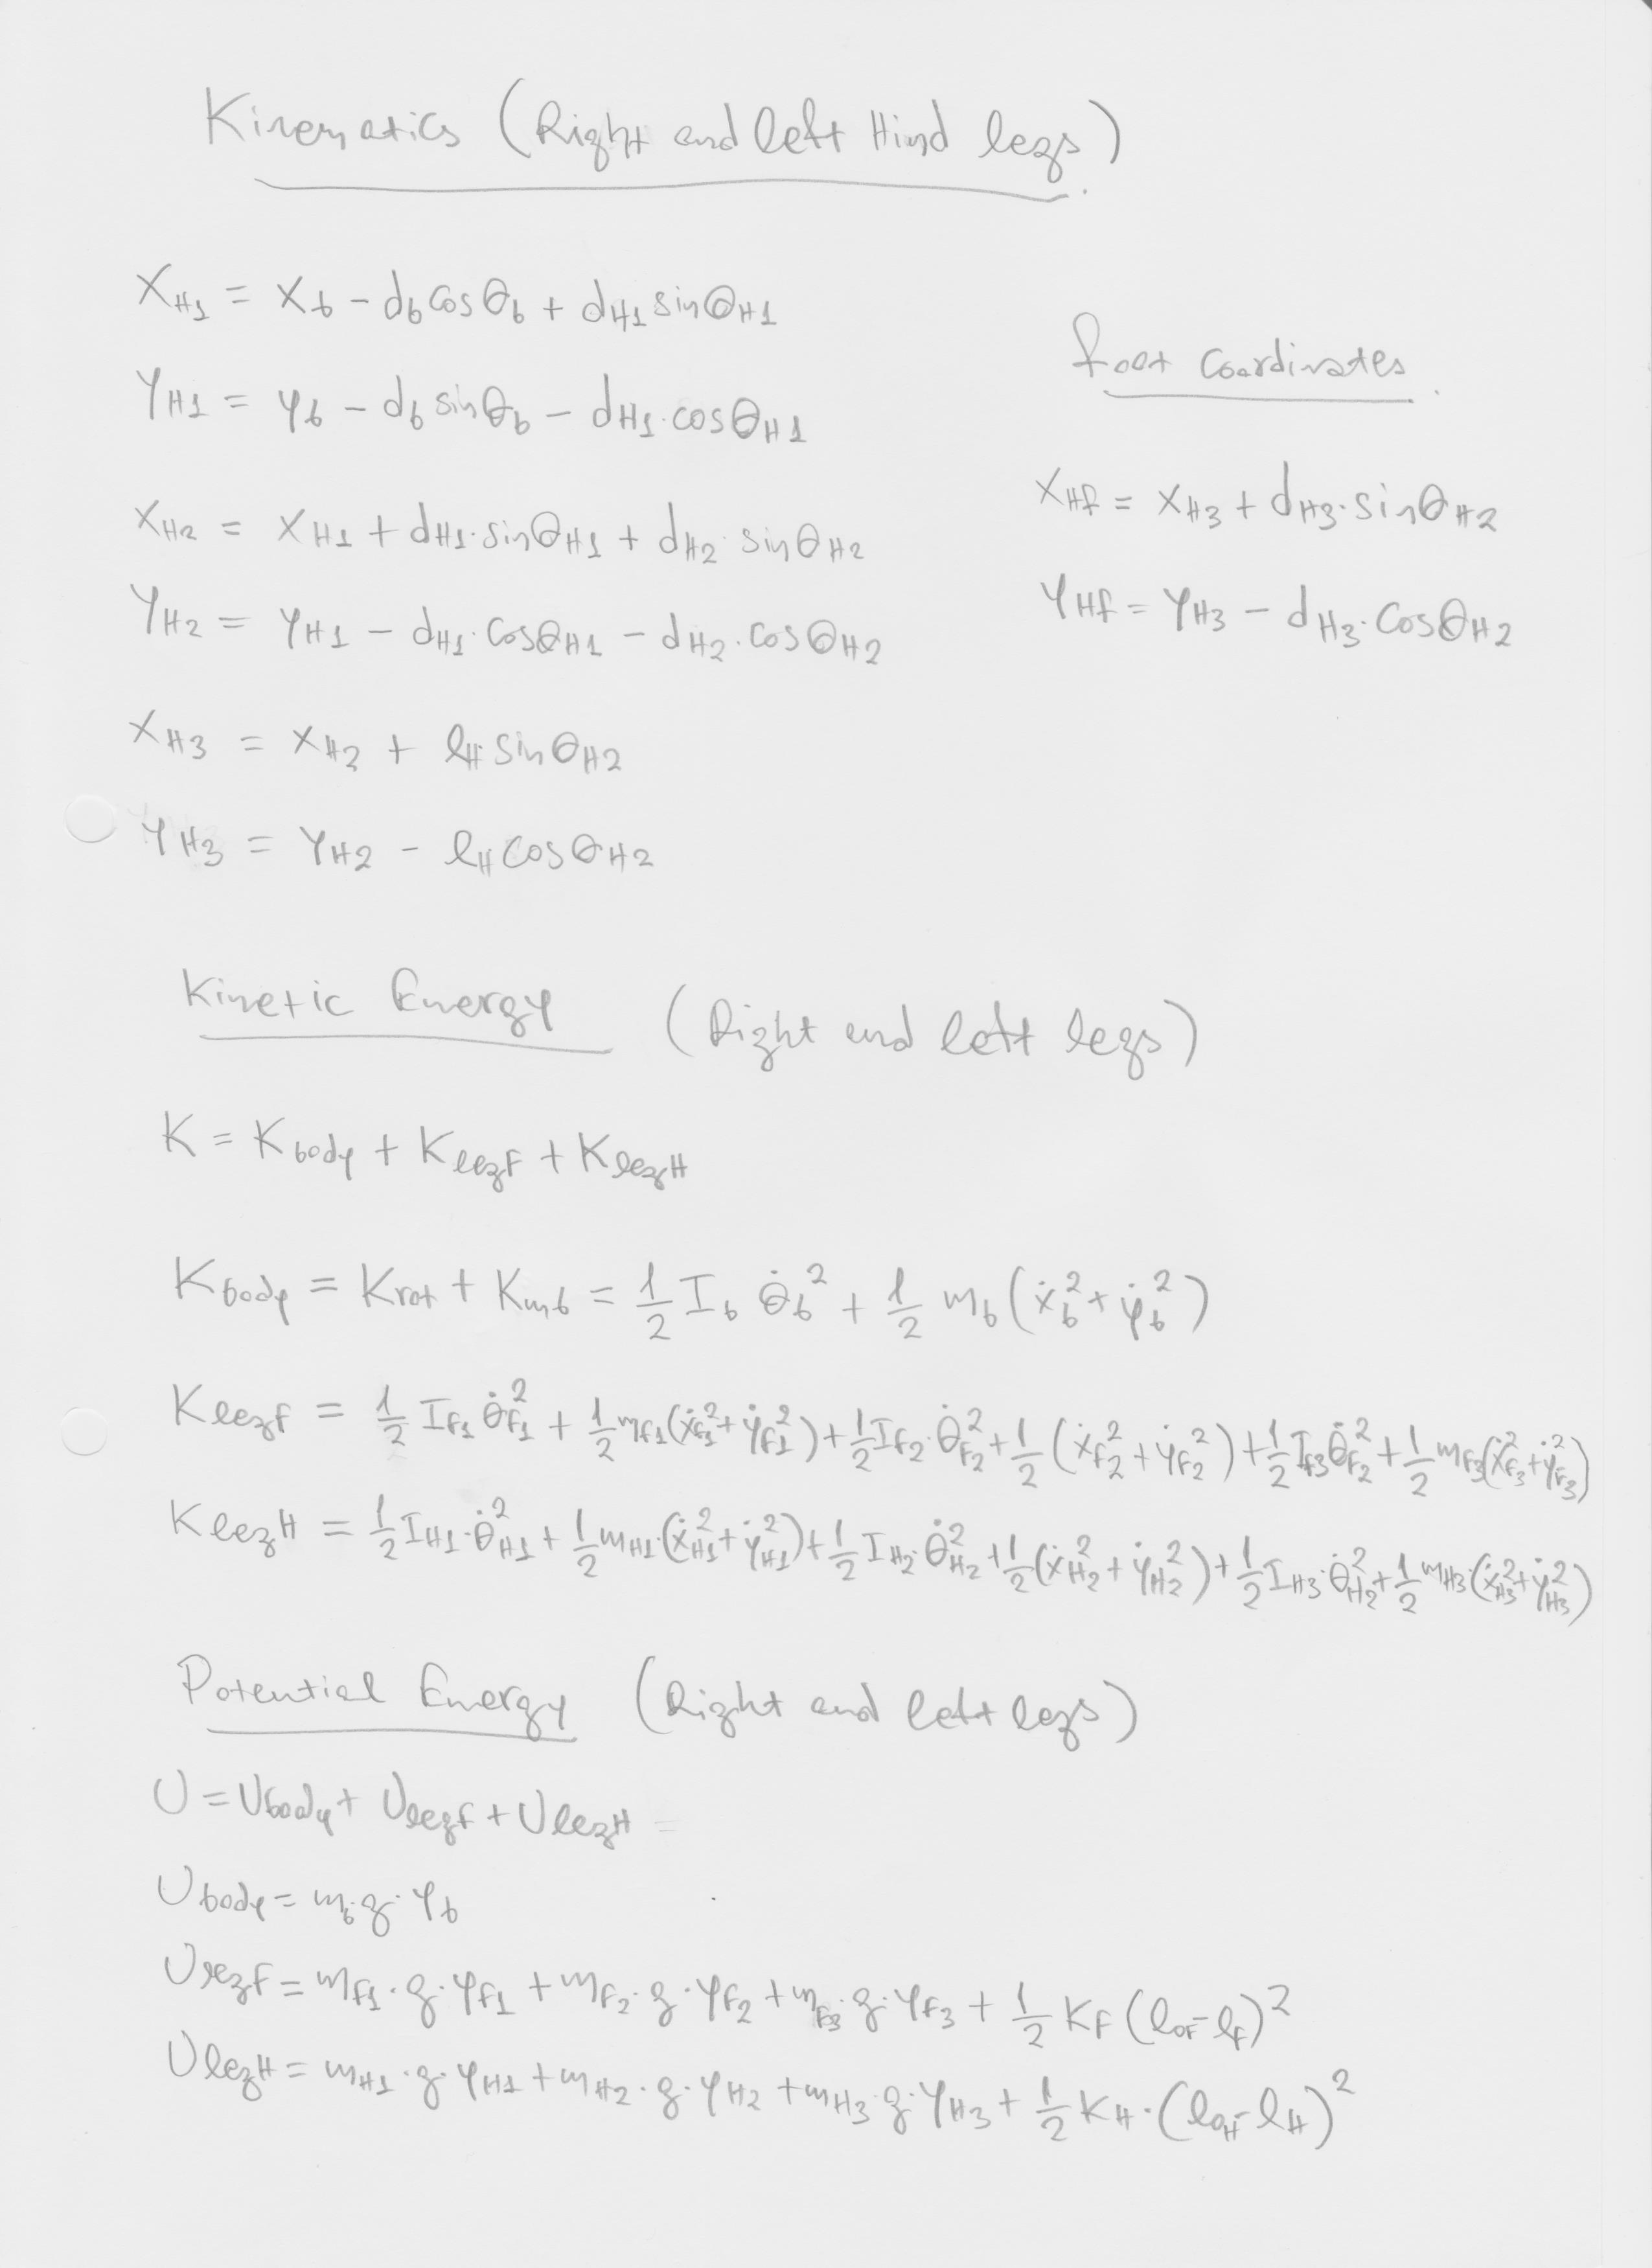 Kinematics (Right and left Hind legs)
x_H1 = x_b - d_b cosθ_b + d_H1 sinθ_H1
y_H1 = y_b - d_b sinθ_b - d_H1·cosθ_H1
x_H2 = x_H1 + d_H1·sinθ_H1 + d_H2·sinθ_H2
y_H2 = y_H1 - d_H1·cosθ_H1 - d_H2·cosθ_H2
x_H3 = x_H2 + l_H·sinθ_H2
y_H3 = y_H2 - l_H cosθ_H2
foot coordinates.
x_Hf = x_H3 + d_H3·sinθ_H2
y_Hf = y_H3 - d_H3·cosθ_H2
Kinetic Energy (Right and left legs)
K = K_body + K_legF + K_legH
K_body = K_rot + K_mb = 1/2 I_b θ̇_b² + 1/2 m_b (ẋ_b² + ẏ_b²)
K_legF = 1/2 I_F1 θ̇_F1² + 1/2 m_F1 (ẋ_F1² + ẏ_F1²) + 1/2 I_F2·θ̇_F2² + 1/2 (ẋ_F2² + ẏ_F2²) + 1/2 I_F3 θ̇_F2² + 1/2 m_F3 (ẋ_F3² + ẏ_F3²)
K_legH = 1/2 I_H1·θ̇_H1² + 1/2 m_H1·(ẋ_H1² + ẏ_H1²) + 1/2 I_H2·θ̇_H2² + 1/2 (ẋ_H2² + ẏ_H2²) + 1/2 I_H3·θ̇_H2² + 1/2 m_H3·(ẋ_H3² + ẏ_H3²)
Potential Energy (Right and left legs)
U = U_body + U_legF + U_legH =
U_body = m_b·g·y_b
U_legF = m_F1·g·y_F1 + m_F2·g·y_F2 + m_F3·g·y_F3 + 1/2 K_F (l_0F - l_F)²
U_legH = m_H1·g·y_H1 + m_H2·g·y_H2 + m_H3·g·y_H3 + 1/2 K_H·(l_0H - l_H)²